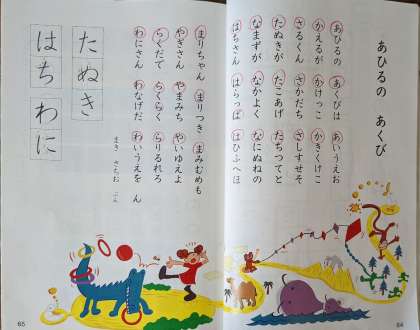 あひるの　あくび
あひるの　あくびは　あいうえお
かえるが　かけっこ　かきくけこ
さるくん　さかだち　さしすせそ
たぬきが　たこあげ　たちつてと
なまずが　なかよく　なにぬねの
はちさん　はらっぱ　はひふへほ
64
まりちゃん　まりつき　まみむめも
やぎさん　やまみち　やいゆえよ
らくだて　らくらく　らりるれろ
わにさん　わなげだ　わいうえを　ん
まき　さちお　ぶん
たぬき
はち　わに
65